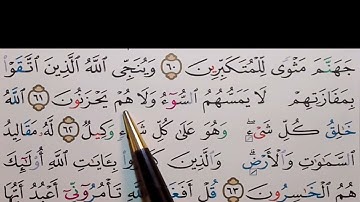 جَهَنَّمَ مَثْوًى لِّلْمُتَكَبِّرِينَ ٦٠ وَيُنَجِّى ٱللَّهُ ٱلَّذِينَ ٱتَّقَوْا۟
بِمَفَازَتِهِمْ لَا يَمَسُّهُمُ ٱلسُّوٓءُ وَلَا هُمْ يَحْزَنُونَ ٦١ ٱللَّهُ
خَٰلِقُ كُلِّ شَىْءٍۖ وَهُوَ عَلَىٰ كُلِّ شَىْءٍ وَكِيلٌ ٦٢ لَّهُۥ مَقَالِيدُ
ٱلسَّمَٰوَٰتِ وَٱلْأَرْضِۗ وَٱلَّذِينَ بِـَٔايَٰتِ ٱللَّهِ أُو۟لَٰٓئِكَ
هُمُ ٱلْخَٰسِرُونَ ٦٣ قُلْ تَأْمُرُوٓنِّىٓ أَعْبُدُ أَيُّهَا